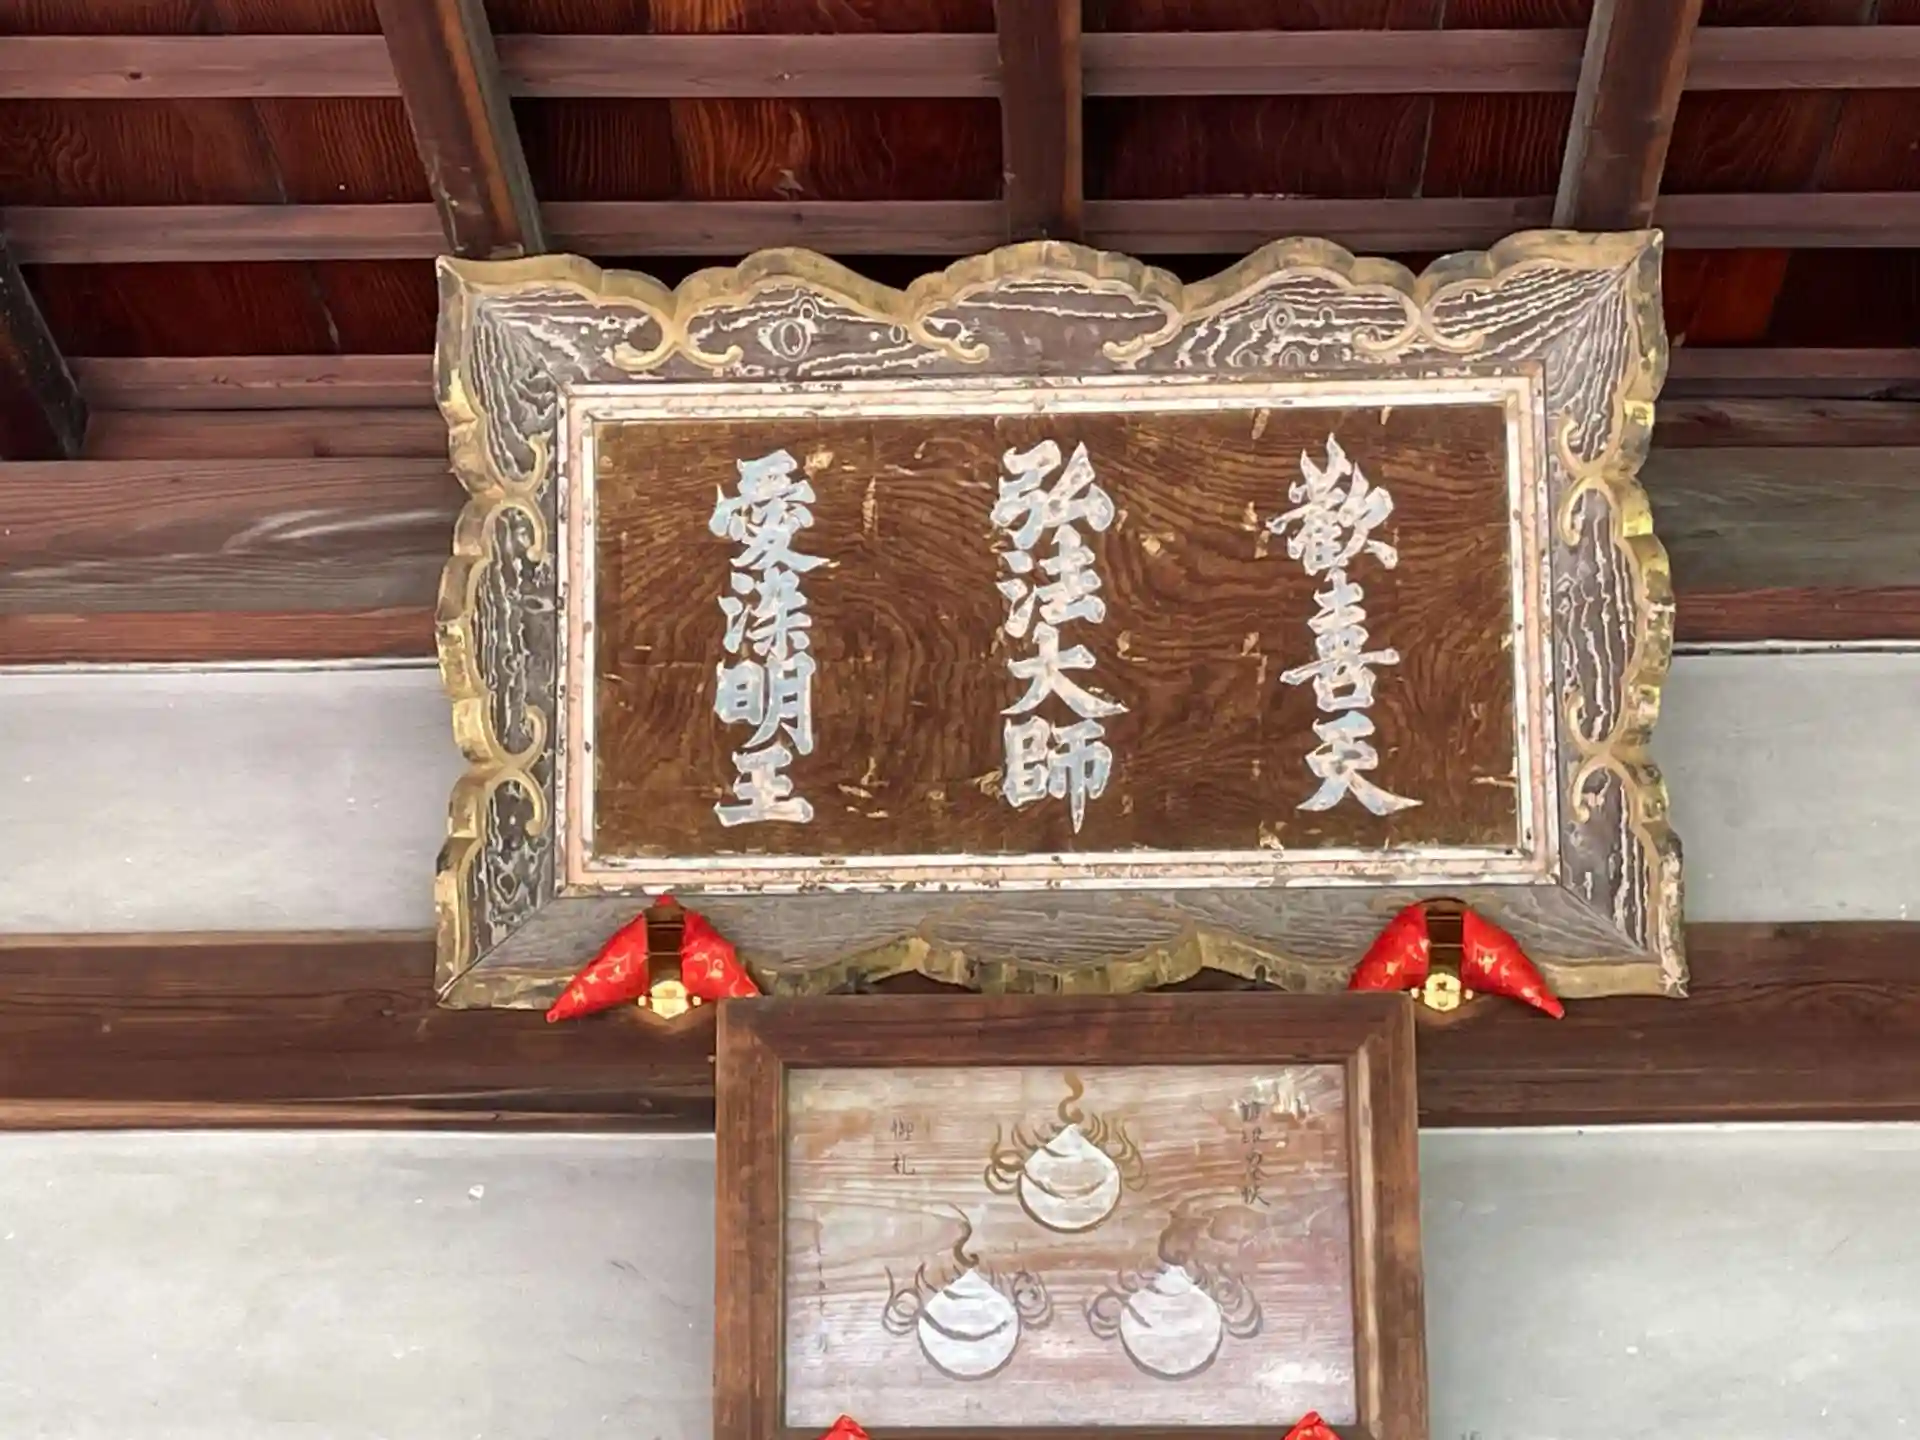 歡喜天
弘法大師
愛染明王
御札